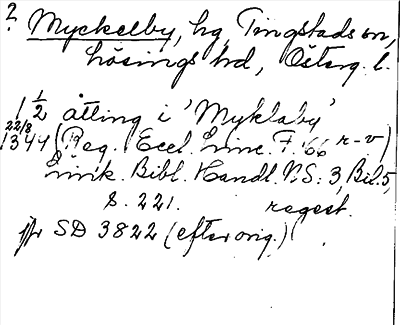 ? Myckelby, hg, Tingstads sn,
Lösings hd, Österg. l.
1 1/2 ätting i 'Myklaby'
22/8
1344 (Reg. Eccl. Linc. F. 66 r-v)
Link. Bibl. Handl. N.S: 3, Bil. 5,
s. 221. regest.
jfr SD 3822 (efter orig.)